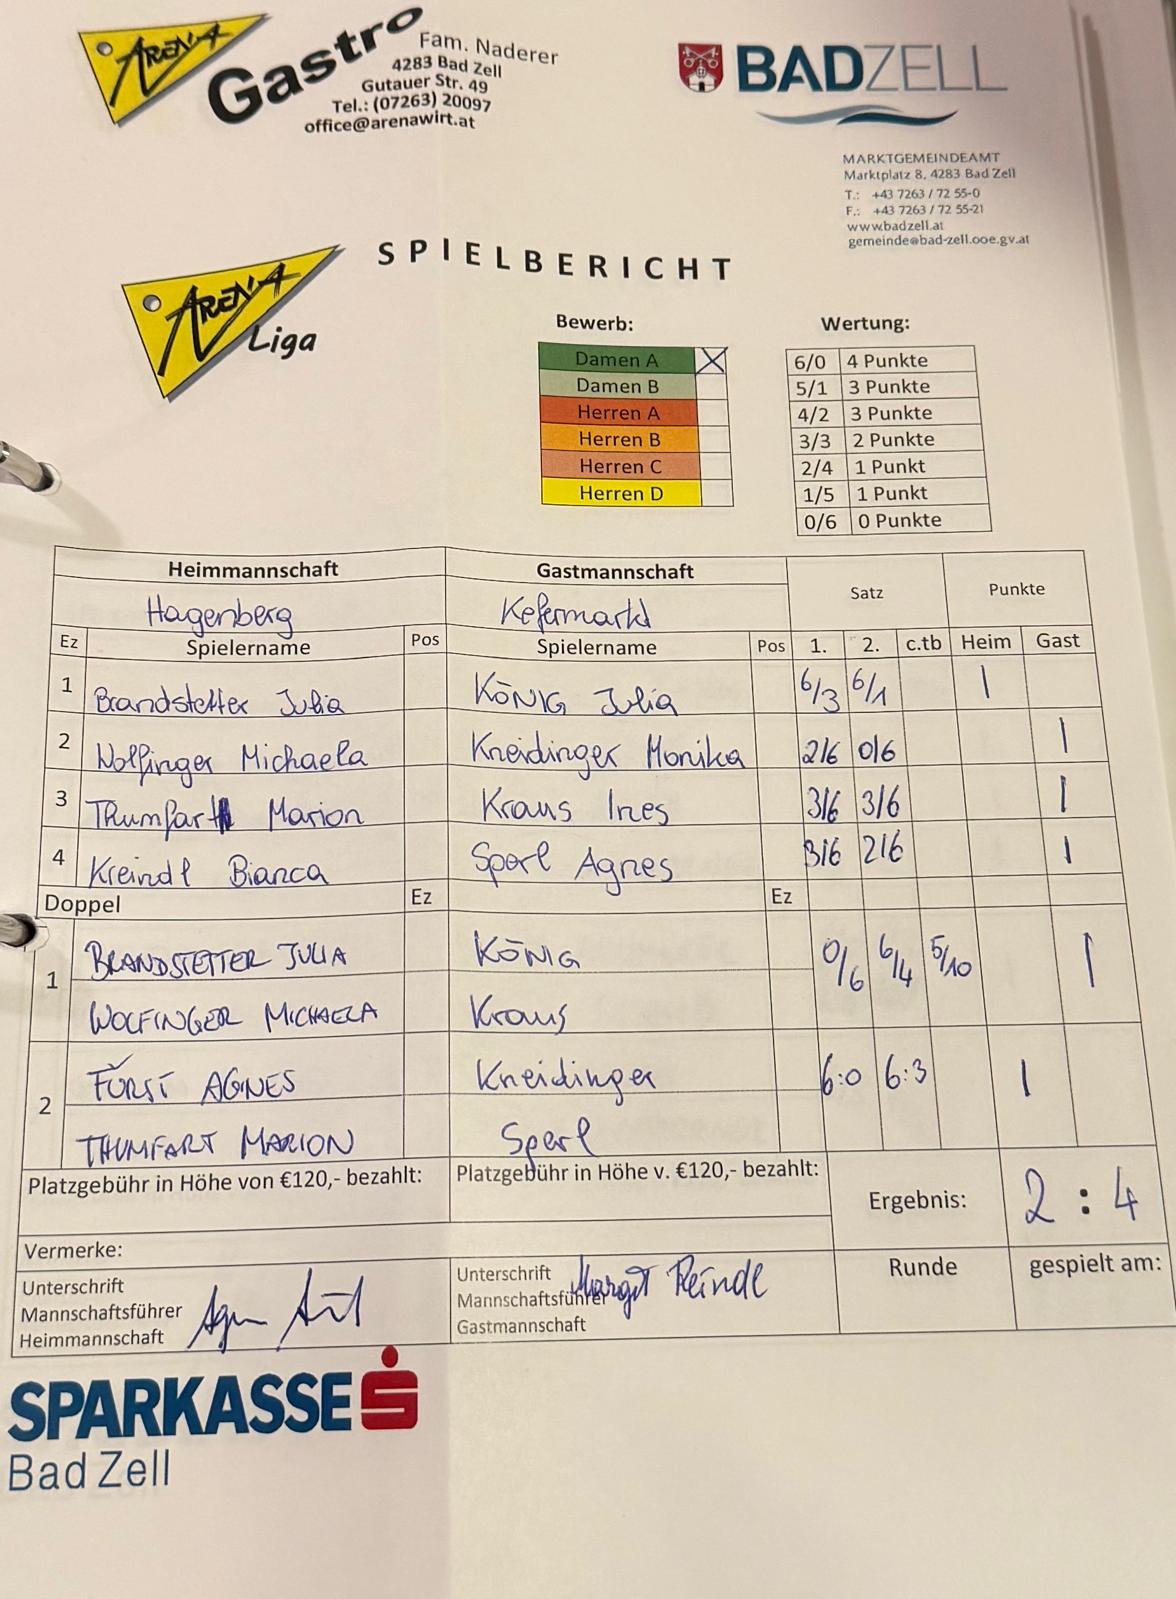 ARENA Gastro
Fam. Naderer
4283 Bad Zell
Gutauer Str. 49
Tel.: (07263) 20097
office@arenawirt.at
BADZELL
MARKTGEMEINDEAMT
Marktplatz 8, 4283 Bad Zell
T.: +43 7263 / 72 55-0
F.: +43 7263 / 72 55-21
www.badzell.at
gemeinde@bad-zell.ooe.gv.at
SPIELBERICHT
ARENA Liga
Bewerb:
Damen A X
Damen B
Herren A
Herren B
Herren C
Herren D
Wertung:
6/0 4 Punkte
5/1 3 Punkte
4/2 3 Punkte
3/3 2 Punkte
2/4 1 Punkt
1/5 1 Punkt
0/6 0 Punkte
Heimmannschaft Gastmannschaft Satz Punkte
Hagenberg Kefermarkt
Ez Spielername Pos Spielername Pos 1. 2. c.tb Heim Gast
1 Brandstetter Julia KÖNIG Julia 6/3 6/1 1
2 Wolfinger Michaela Kneidinger Monika 2/6 0/6 1
3 Thumfart Marion Kraus Ines 3/6 3/6 1
4 Kreindl Bianca Sperl Agnes 3/6 2/6 1
Doppel Ez Ez
1 BRANDSTETTER JULIA KÖNIG 0/6 6/4 5/10 1
WOLFINGER MICHAELA Kraus
2 FÜRST AGNES Kneidinger 6:0 6:3 1
THUMFART MARION Sperl
Platzgebühr in Höhe von €120,- bezahlt: Platzgebühr in Höhe v. €120,- bezahlt:
Ergebnis: 2 : 4
Vermerke:
Unterschrift
Mannschaftsführer
Heimmannschaft
Unterschrift
Mannschaftsführer
Gastmannschaft
Margit Reindl
Runde gespielt am:
SPARKASSE
Bad Zell